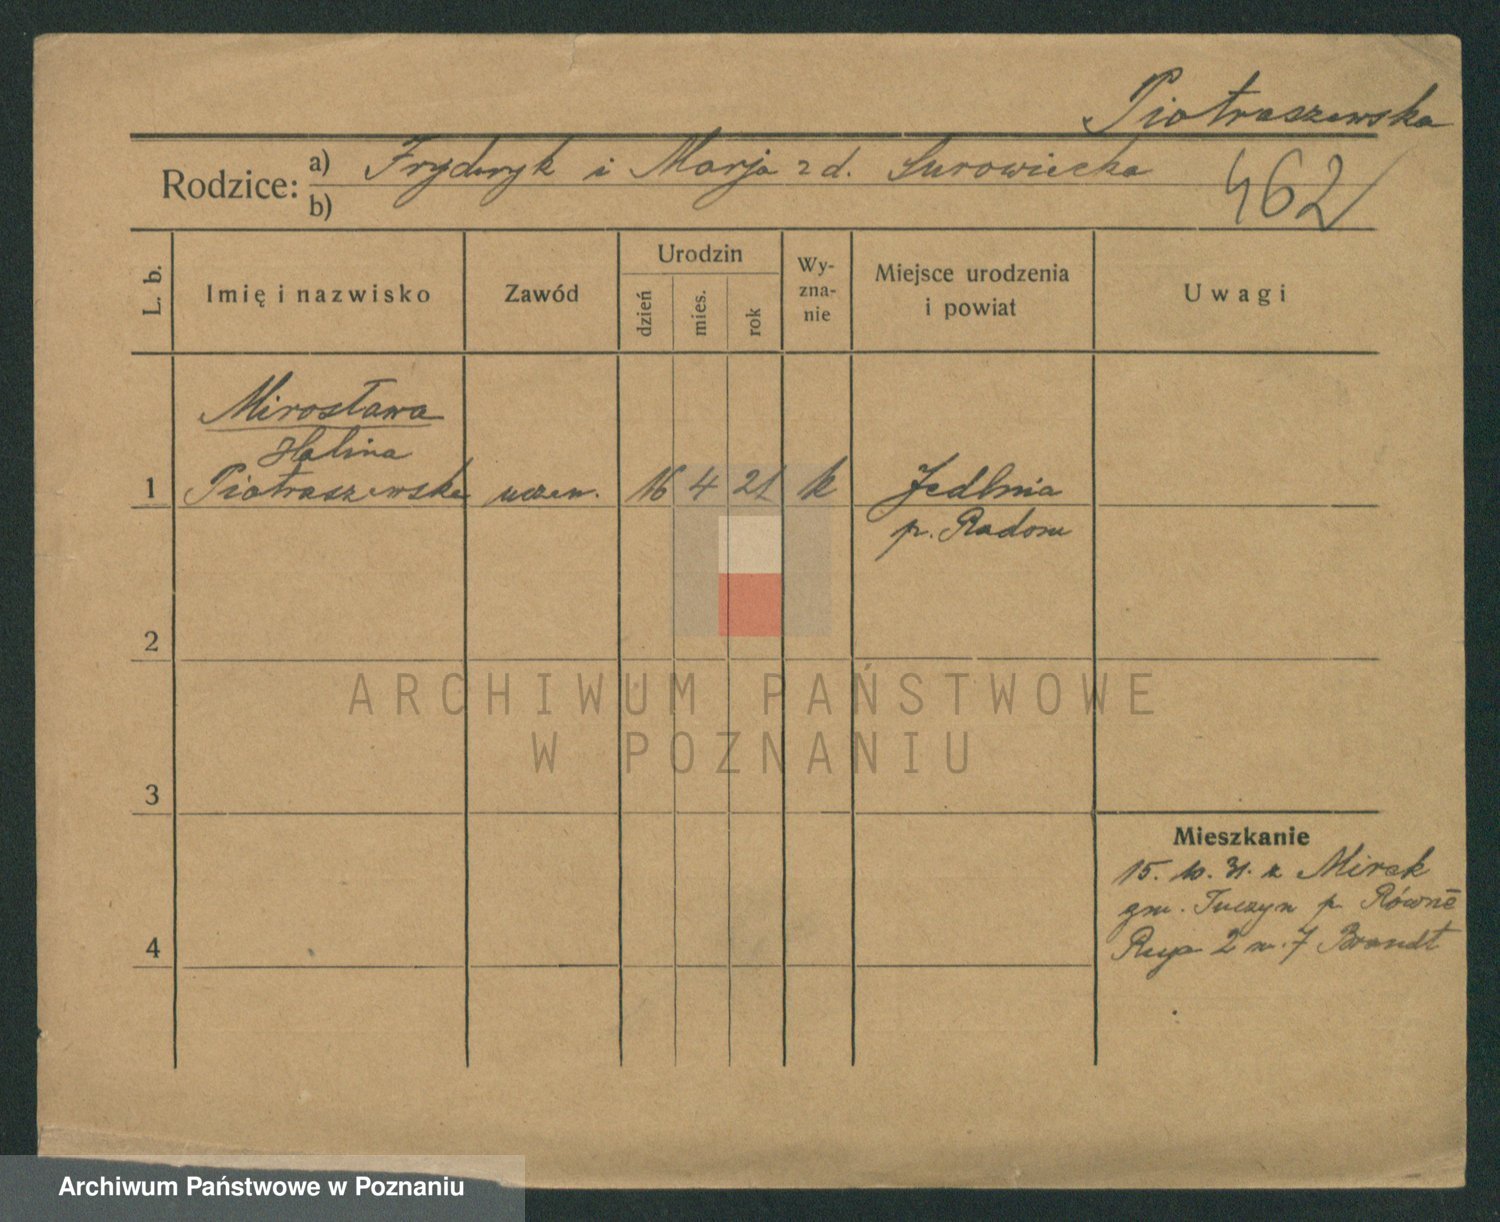 Piotraszewska
Rodzice: a) Fryderyk i Marja z d. Surowiecka
b)
462
L. b.
Imię i nazwisko
Zawód
Urodzin
dzień
mies.
rok
Wy-
zna-
nie
Miejsce urodzenia
i powiat
Uwagi
Mirosława
Halina
1 Piotraszewska uczen. 16 4 21 k Jedlnia
p. Radom
2
3
4
ARCHIWUM PAŃSTWOWE
W POZNANIU
Mieszkanie
15. 10. 31. z Mirek
gm. Tuczyn p. Równe
2 m. 7 Brandt
Archiwum Państwowe w Poznaniu